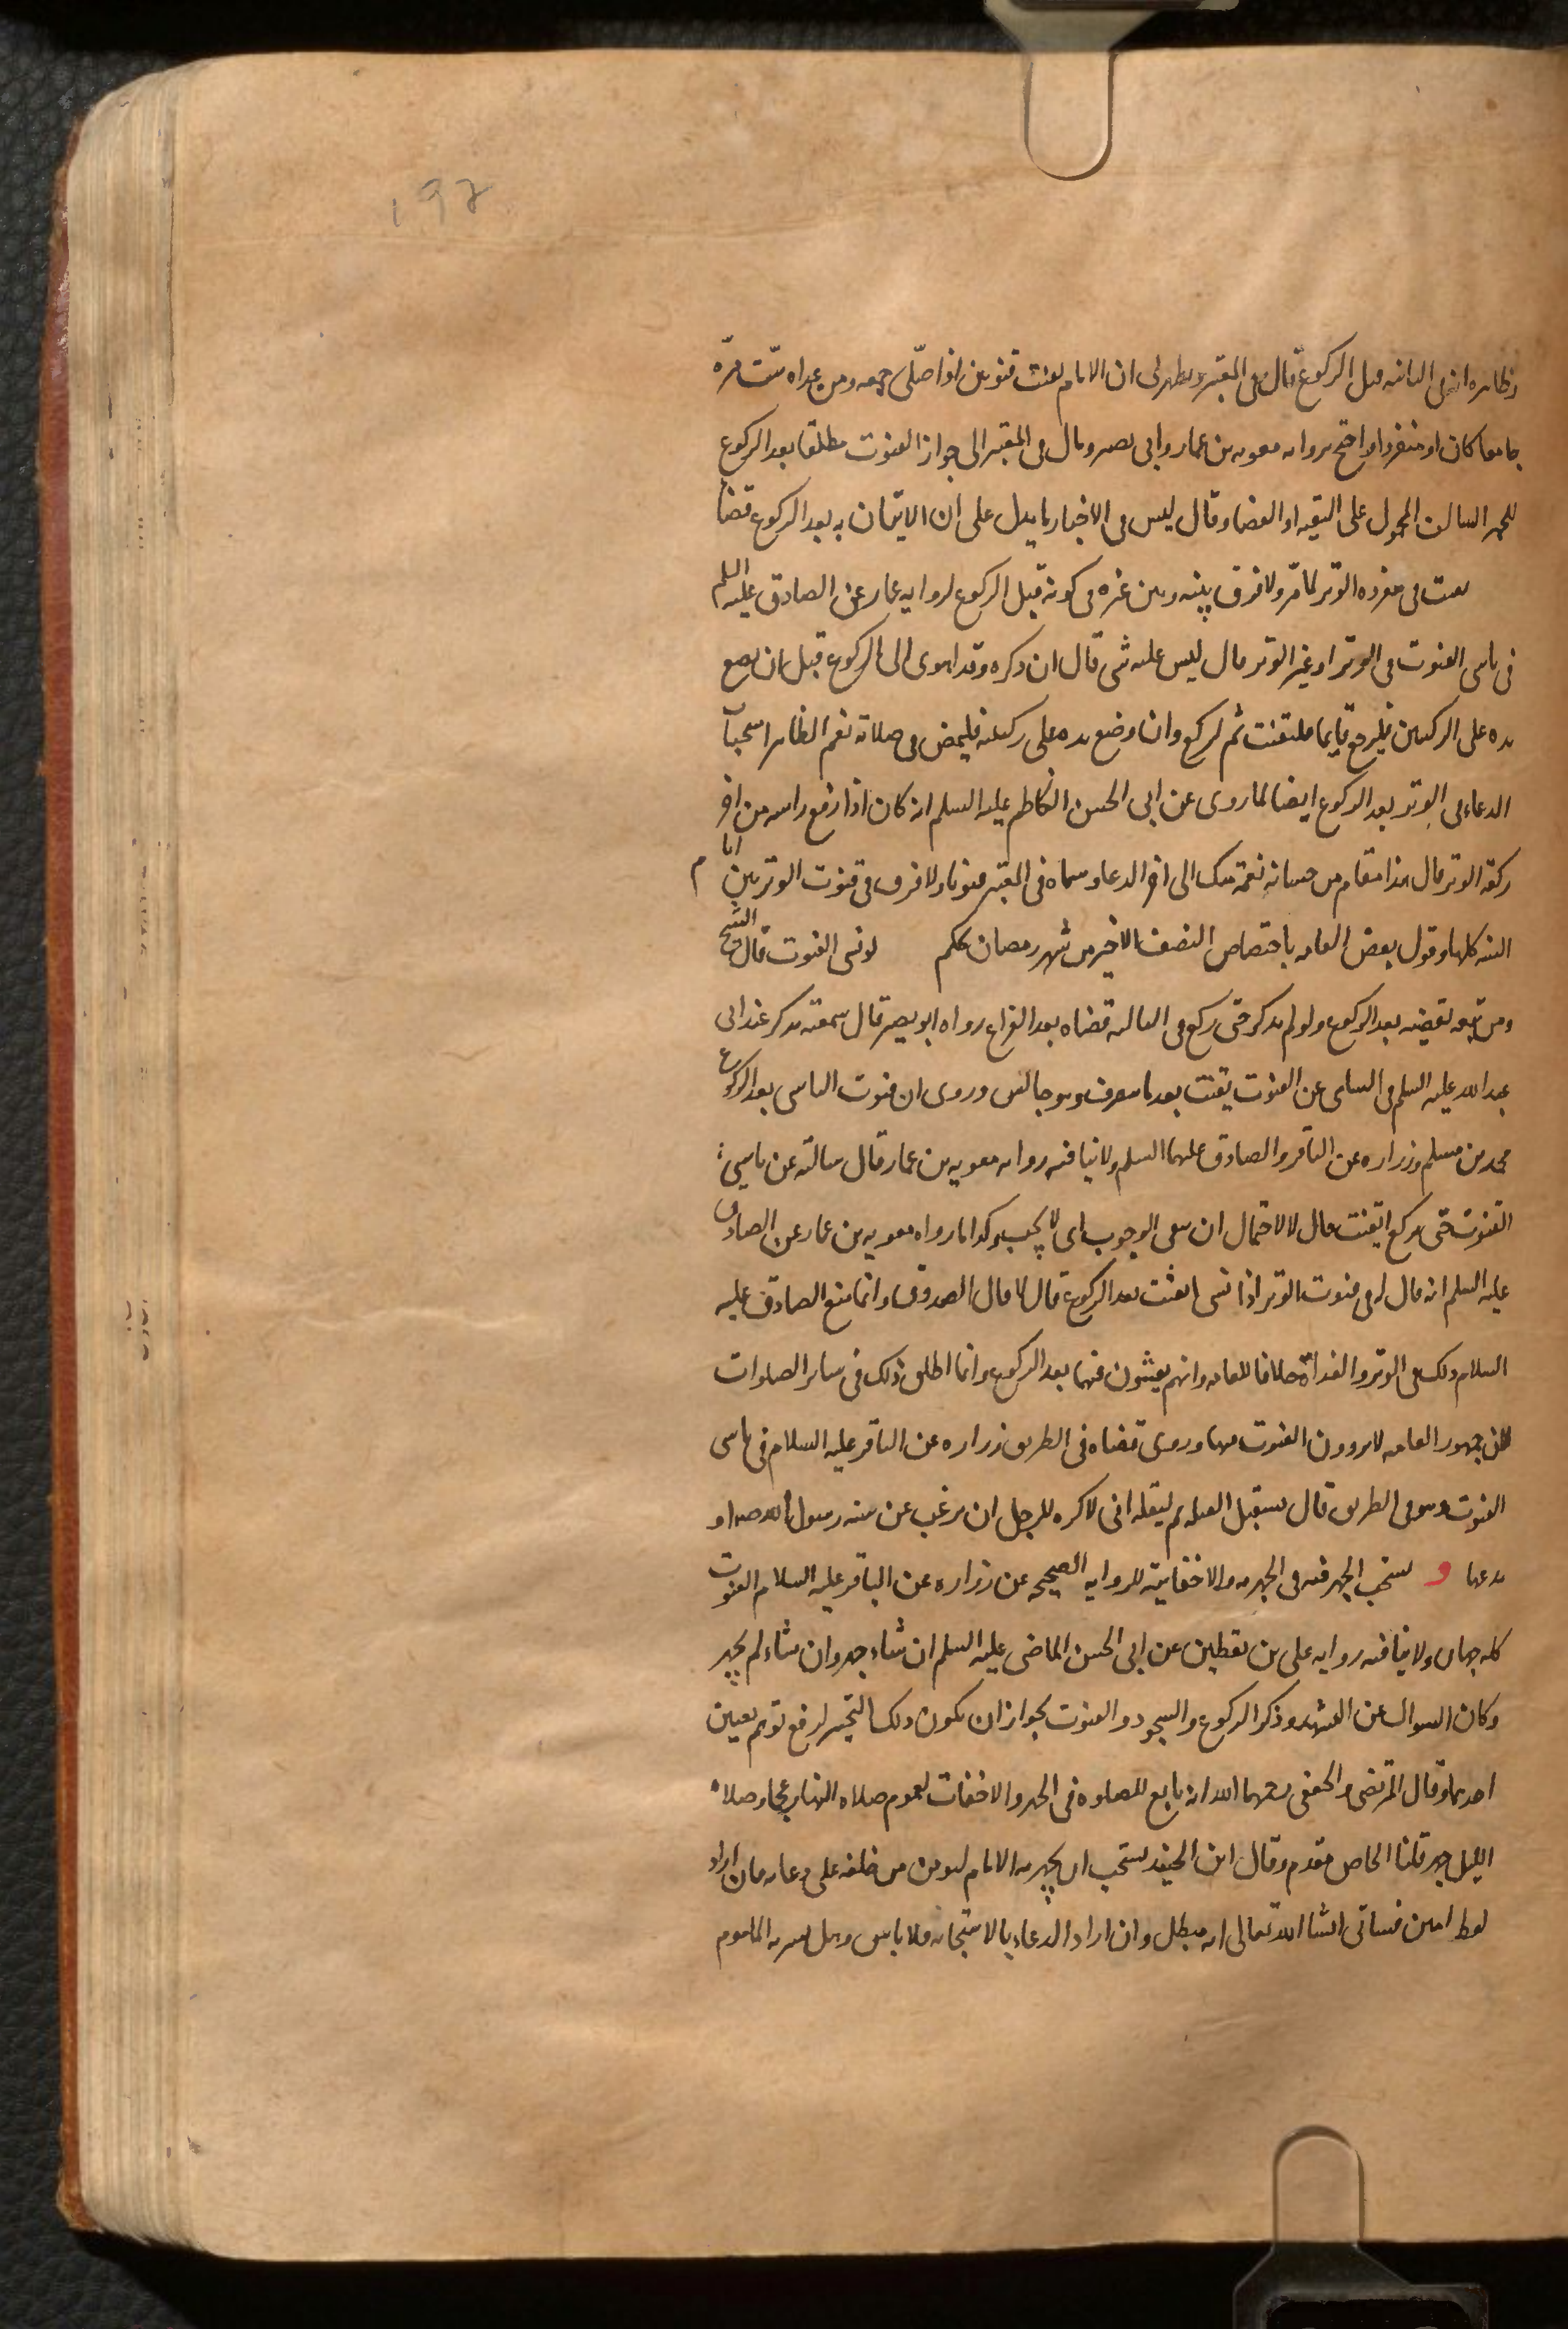 192
وظاهره انه في الثانيه قبل الركوع قال في المعتبر ويظهر لي ان الامام يقنت قنوتين اذا صلى جمعه ومن عداه يقنت مرّة
جامعا كان او منفردا واحتج بروايه معويه بن عمار وابي بصير ومال في المعتبر الى جواز القنوت مطلقا بعد الركوع
للخبر السالف المحمول على التقيه او القضاء وقال ليس في الاخبار ما يدل على ان الاتيان به بعد الركوع قضا
يقنت في مفرده الوتر لما مرّ ولا فرق بينه وبين غيره في كونه قبل الركوع لروايه عمار عن الصادق عليه السلم
في ناسي القنوت في الوتر او غير الوتر قال ليس عليه شي قال ان ذكره وقد اهوى الى الركوع قبل ان يضع
يده على الركبتين فليرجع قايما فليقنت ثم ليركع وان وضع يده على ركبتيه فليمض في صلاته نعم الظاهر استحباب
الدعاء في الوتر بعد الركوع ايضا لما روى عن ابي الحسن الكاظم عليه السلم انه كان اذا رفع راسه من اخر
ركعه الوتر قال هذا مقام من حسناته نعمة منك الى اخر الدعاء وسماه في المعتبر قنوتا ولا فرق في قنوت الوتر بين ايام
السنه كلها وقول بعض العامه باختصاص النصف الاخير من شهر رمضان تحكم لو نسي القنوت قال الشيخ
ومن تبعه يقضيه بعد الركوع ولو لم يذكر حتى ركع في الثالثه قضاه بعد الفراغ رواه ابو بصير قال سمعته يذكر عند ابي
عبد الله عليه السلم في الساهي عن القنوت يقنت بعد ما ينصرف وهو جالس وروى ان قنوت الناسي بعد الركوع
محمد بن مسلم وزراره عن الباقر والصادق عليهما السلم ولا ينافيه روايه معويه بن عمار قال سالته عن ناسي
القنوت حتى يركع ايقنت قال لا لاحتمال ان ينفي الوجوب اي لا يجب وكذا ما رواه معويه بن عمار عن الصادق
عليه السلم انه قال له في قنوت الوتر اذا نسي ايقنت بعد الركوع قال لا قال الصدوق وانما منع الصادق عليه
السلام ذلك في الوتر والغداة خلافا للعامه وانهم يقنتون فيهما بعد الركوع وانما اطلق ذلك في ساير الصلوات
لان جمهور العامه لا يرون القنوت فيها وروى قضاه في الطريق زراره عن الباقر عليه السلام في ناسي
القنوت وهو في الطريق قال يستقبل القبله ثم ليقله اني لاكره للرجل ان يرغب عن سنه رسول الله صه او
يدعها و يستحب الجهر فيه في الجهريه والاخفاتية للروايه الصحيحه عن زراره عن الباقر عليه السلام القنوت
كله جهار ولا ينافيه روايه علي بن يقطين عن ابي الحسن الماضي عليه السلم ان شاء جهر وان شاء لم يجهر
وكان السوال عن التشهد وذكر الركوع والسجود والقنوت لجواز ان يكون ذلك التخيير لرفع توهم تعيين
احدهما وقال المرتضى والجعفي رحمهما الله انه تابع للصلوه في الجهر والاخفات لعموم صلاه النهار عجما وصلاة
الليل جهر قلنا الخاص مقدم وقال ابن الجنيد يستحب ان يجهر به الامام ليومن من خلفه على دعايه فان اراد
لفظ امين فسياتي انشا الله تعالى انه مبطل وان اراد الدعاء بالاستجابه فلا باس وهل يسر به الماموم